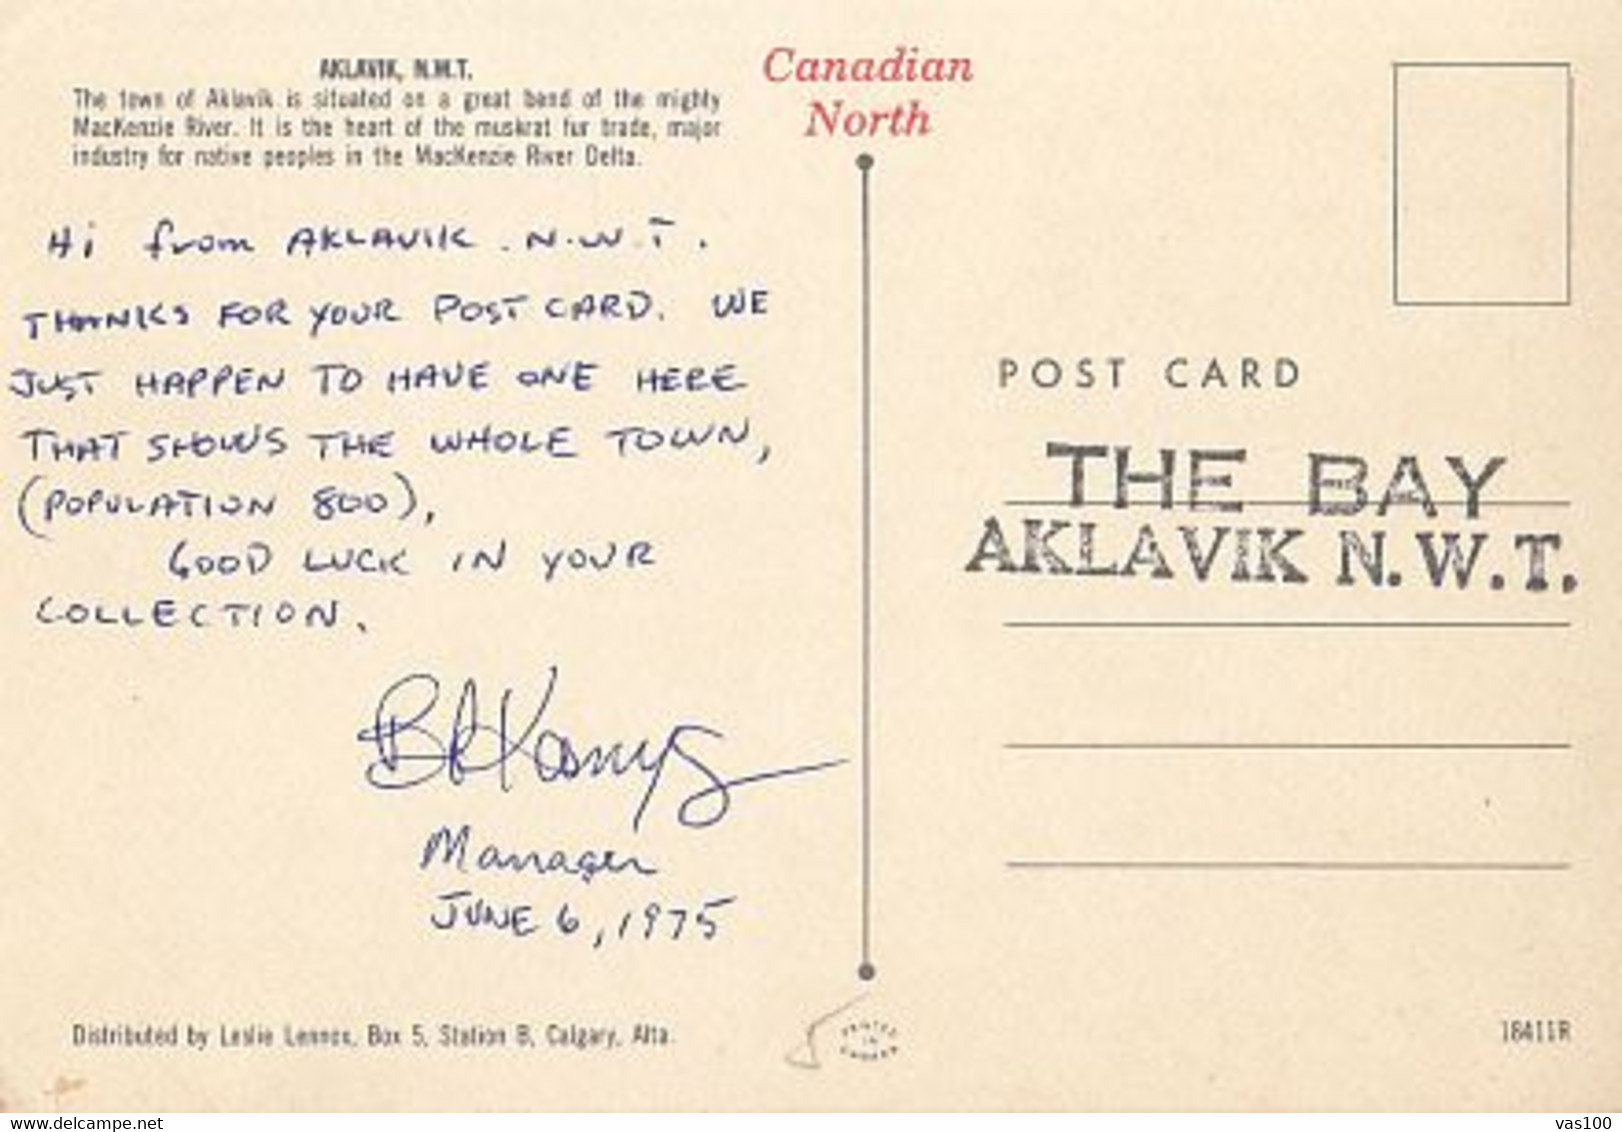 AKLAVIK, N.W.T.
The town of Aklavik is situated on a great bend of the mighty
MacKenzie River. It is the heart of the muskrat fur trade, major
industry for native peoples in the MacKenzie River Delta.
Canadian
North
Hi from AKLAVIK . N.W.T.
THANKS FOR YOUR POST CARD. WE
JUST HAPPEN TO HAVE ONE HERE
THAT SHOWS THE WHOLE TOWN,
(POPULATION 800),
GOOD LUCK IN YOUR
COLLECTION.
Manager
JUNE 6, 1975
POST CARD
THE BAY
AKLAVIK N.W.T.
Distributed by Leslie Lennox, Box 5, Station B, Calgary, Alta.
PRINTED
IN
CANADA
18411R
www.delcampe.net
vas100